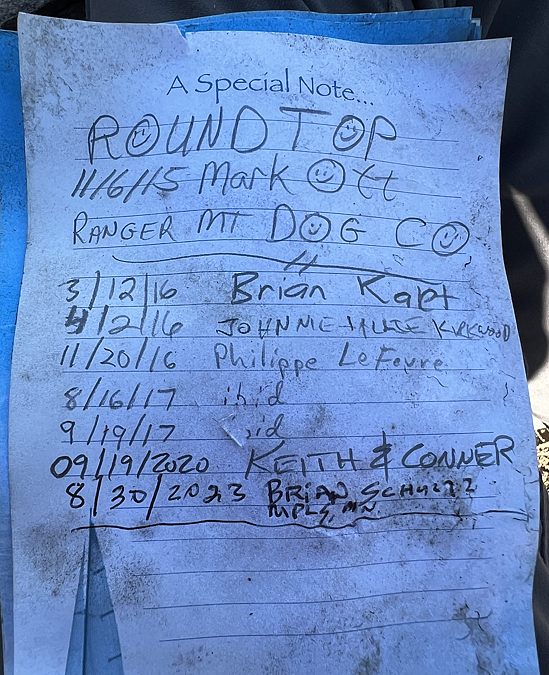 A Special Note...
ROUND TOP
11/6/15 Mark Ott
RANGER MT DOG CO
3/12/16 Brian Kalet
4/2/16 JOHNNIE KIRKWOOD
11/20/16 Philippe LeFevre
8/16/17 ibid
9/19/17 ibid
09/19/2020 KEITH & CONNER
8/30/2023 BRIAN SCHULTZ
MPLS, MN